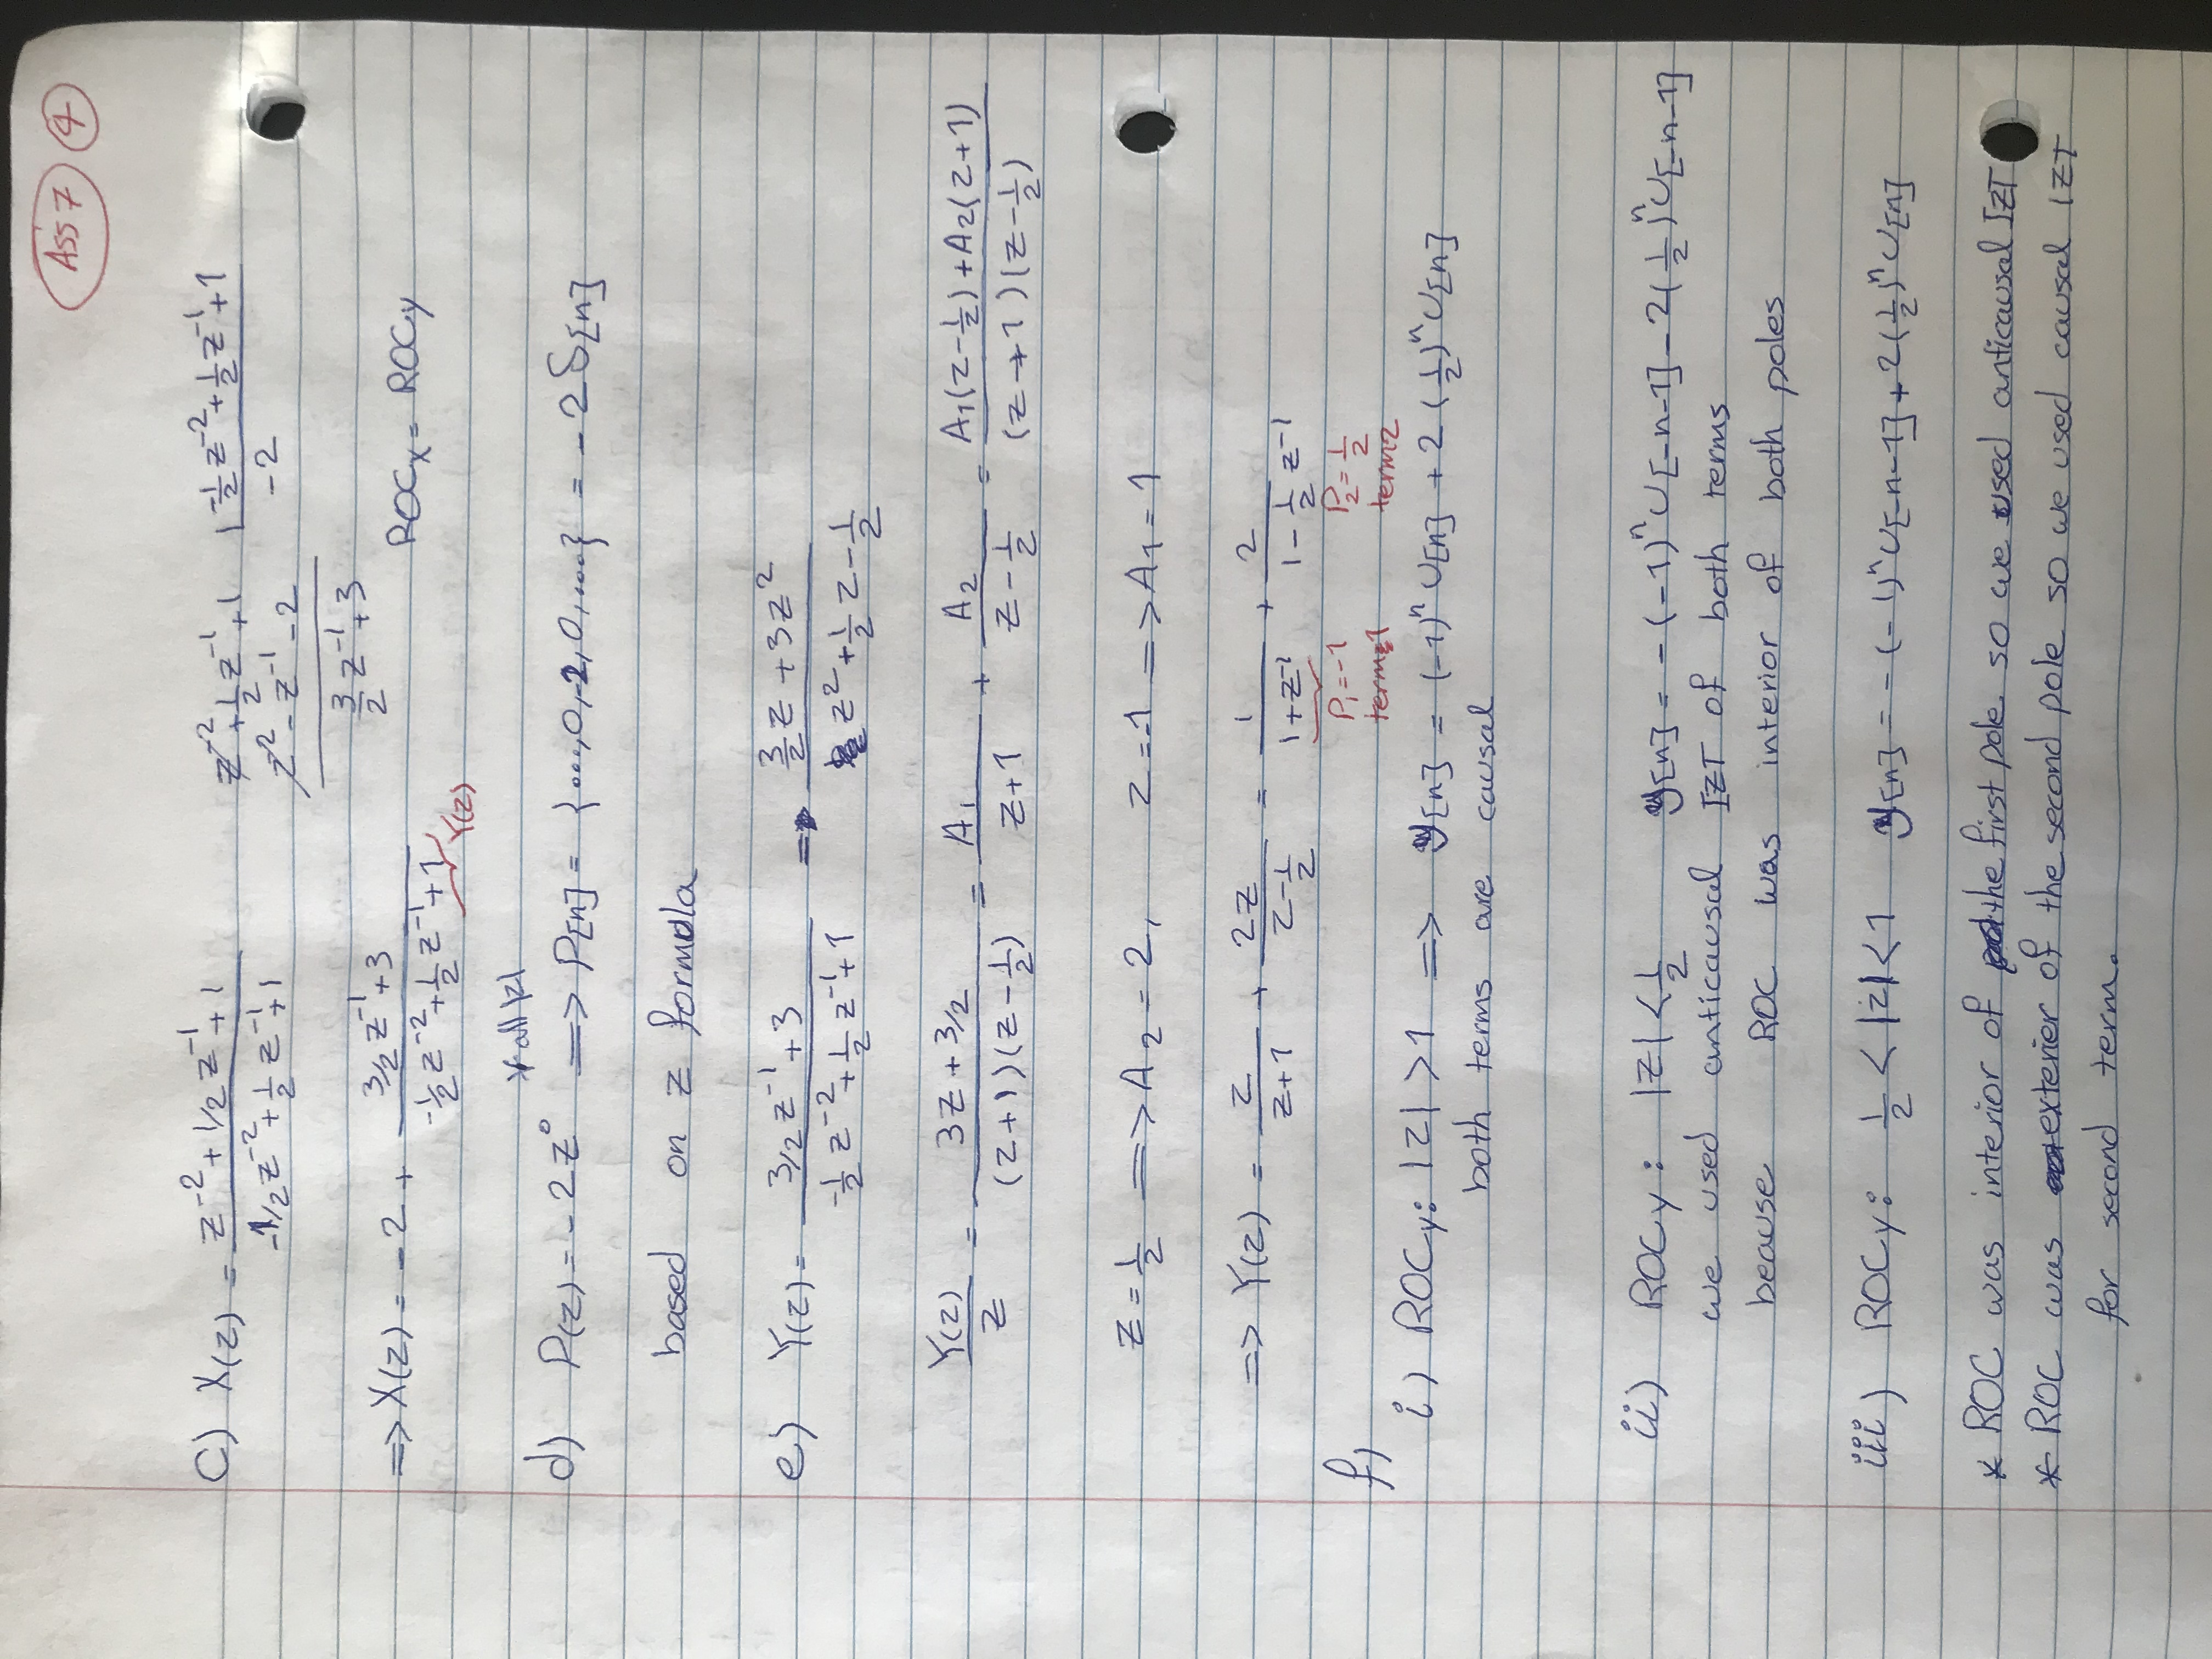 Ass 7 4
c) X(z) = (z^-2 + 1/2 z^-1 + 1) / (-1/2 z^-2 + 1/2 z^-1 + 1)
z^-2 + 1/2 z^-1 + 1 | -1/2 z^-2 + 1/2 z^-1 + 1
z^-2 - z^-1 - 2 -2
3/2 z^-1 + 3
=> X(z) = -2 + (3/2 z^-1 + 3) / (-1/2 z^-2 + 1/2 z^-1 + 1) Y(z) ROCx = ROCy
∀ all |z|
d) P(z) = -2z^0 => P[n] = {..., 0, -2, 0, ...} = -2δ[n]
based on z formula
e) Y(z) = (3/2 z^-1 + 3) / (-1/2 z^-2 + 1/2 z^-1 + 1) => (3/2 z + 3z^2) / (z^2 + 1/2 z - 1/2)
Y(z)/z = (3z + 3/2) / ((z+1)(z-1/2)) = A1/(z+1) + A2/(z-1/2) = (A1(z-1/2) + A2(z+1)) / ((z+1)(z-1/2))
z = 1/2 => A2 = 2, z = -1 => A1 = 1
=> Y(z) = z/(z+1) + 2z/(z-1/2) = 1/(1+z^-1) + 2/(1 - 1/2 z^-1)
P1 = -1 P2 = 1/2
term 1 term 2
f)
i) ROCy: |z| > 1 => y[n] = (-1)^n U[n] + 2(1/2)^n U[n]
both terms are causal
ii) ROCy: |z| < 1/2 y[n] = -(-1)^n U[-n-1] - 2(1/2)^n U[-n-1]
we used anticausal IZT of both terms
beause ROC was interior of both poles
iii) ROCy: 1/2 < |z| < 1 y[n] = -(-1)^n U[-n-1] + 2(1/2)^n U[n]
* ROC was interior of the first pole so we used anticausal IZT
* ROC was exterier of the second pole so we used causal IZT
for second term.